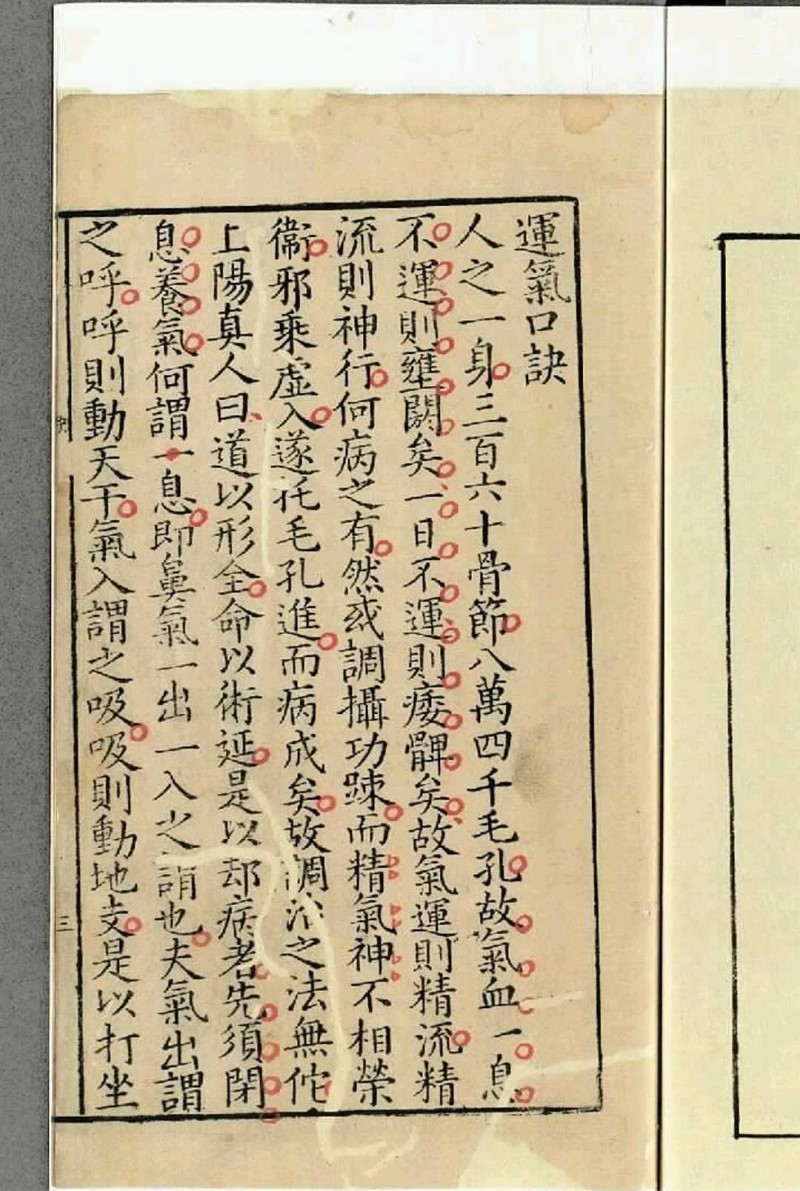 運氣口訣
人之一身三百六十骨節八萬四千毛孔故氣血一息
不運則壅闕矣一日不運則痿髀矣故氣運則精流精
流則神行何病之有然或調攝功踈而精氣神不相榮
衞邪乘虛入遂托毛孔進而病成矣故調治之法無佗
上陽真人曰道以形全命以術延是以却病者先須閉
息養氣何謂一息即鼻氣一出一入之謂也夫氣出謂
之呼呼則動天干氣入謂之吸吸則動地支是以打坐
三